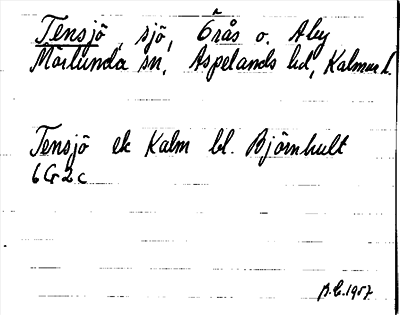 Tensjö, sjö, Örås o. Aby
Mörlunda sn, Aspelands hd, Kalmar l.
Tensjö ek Kalm bl. Björnhult
6G2c
1957